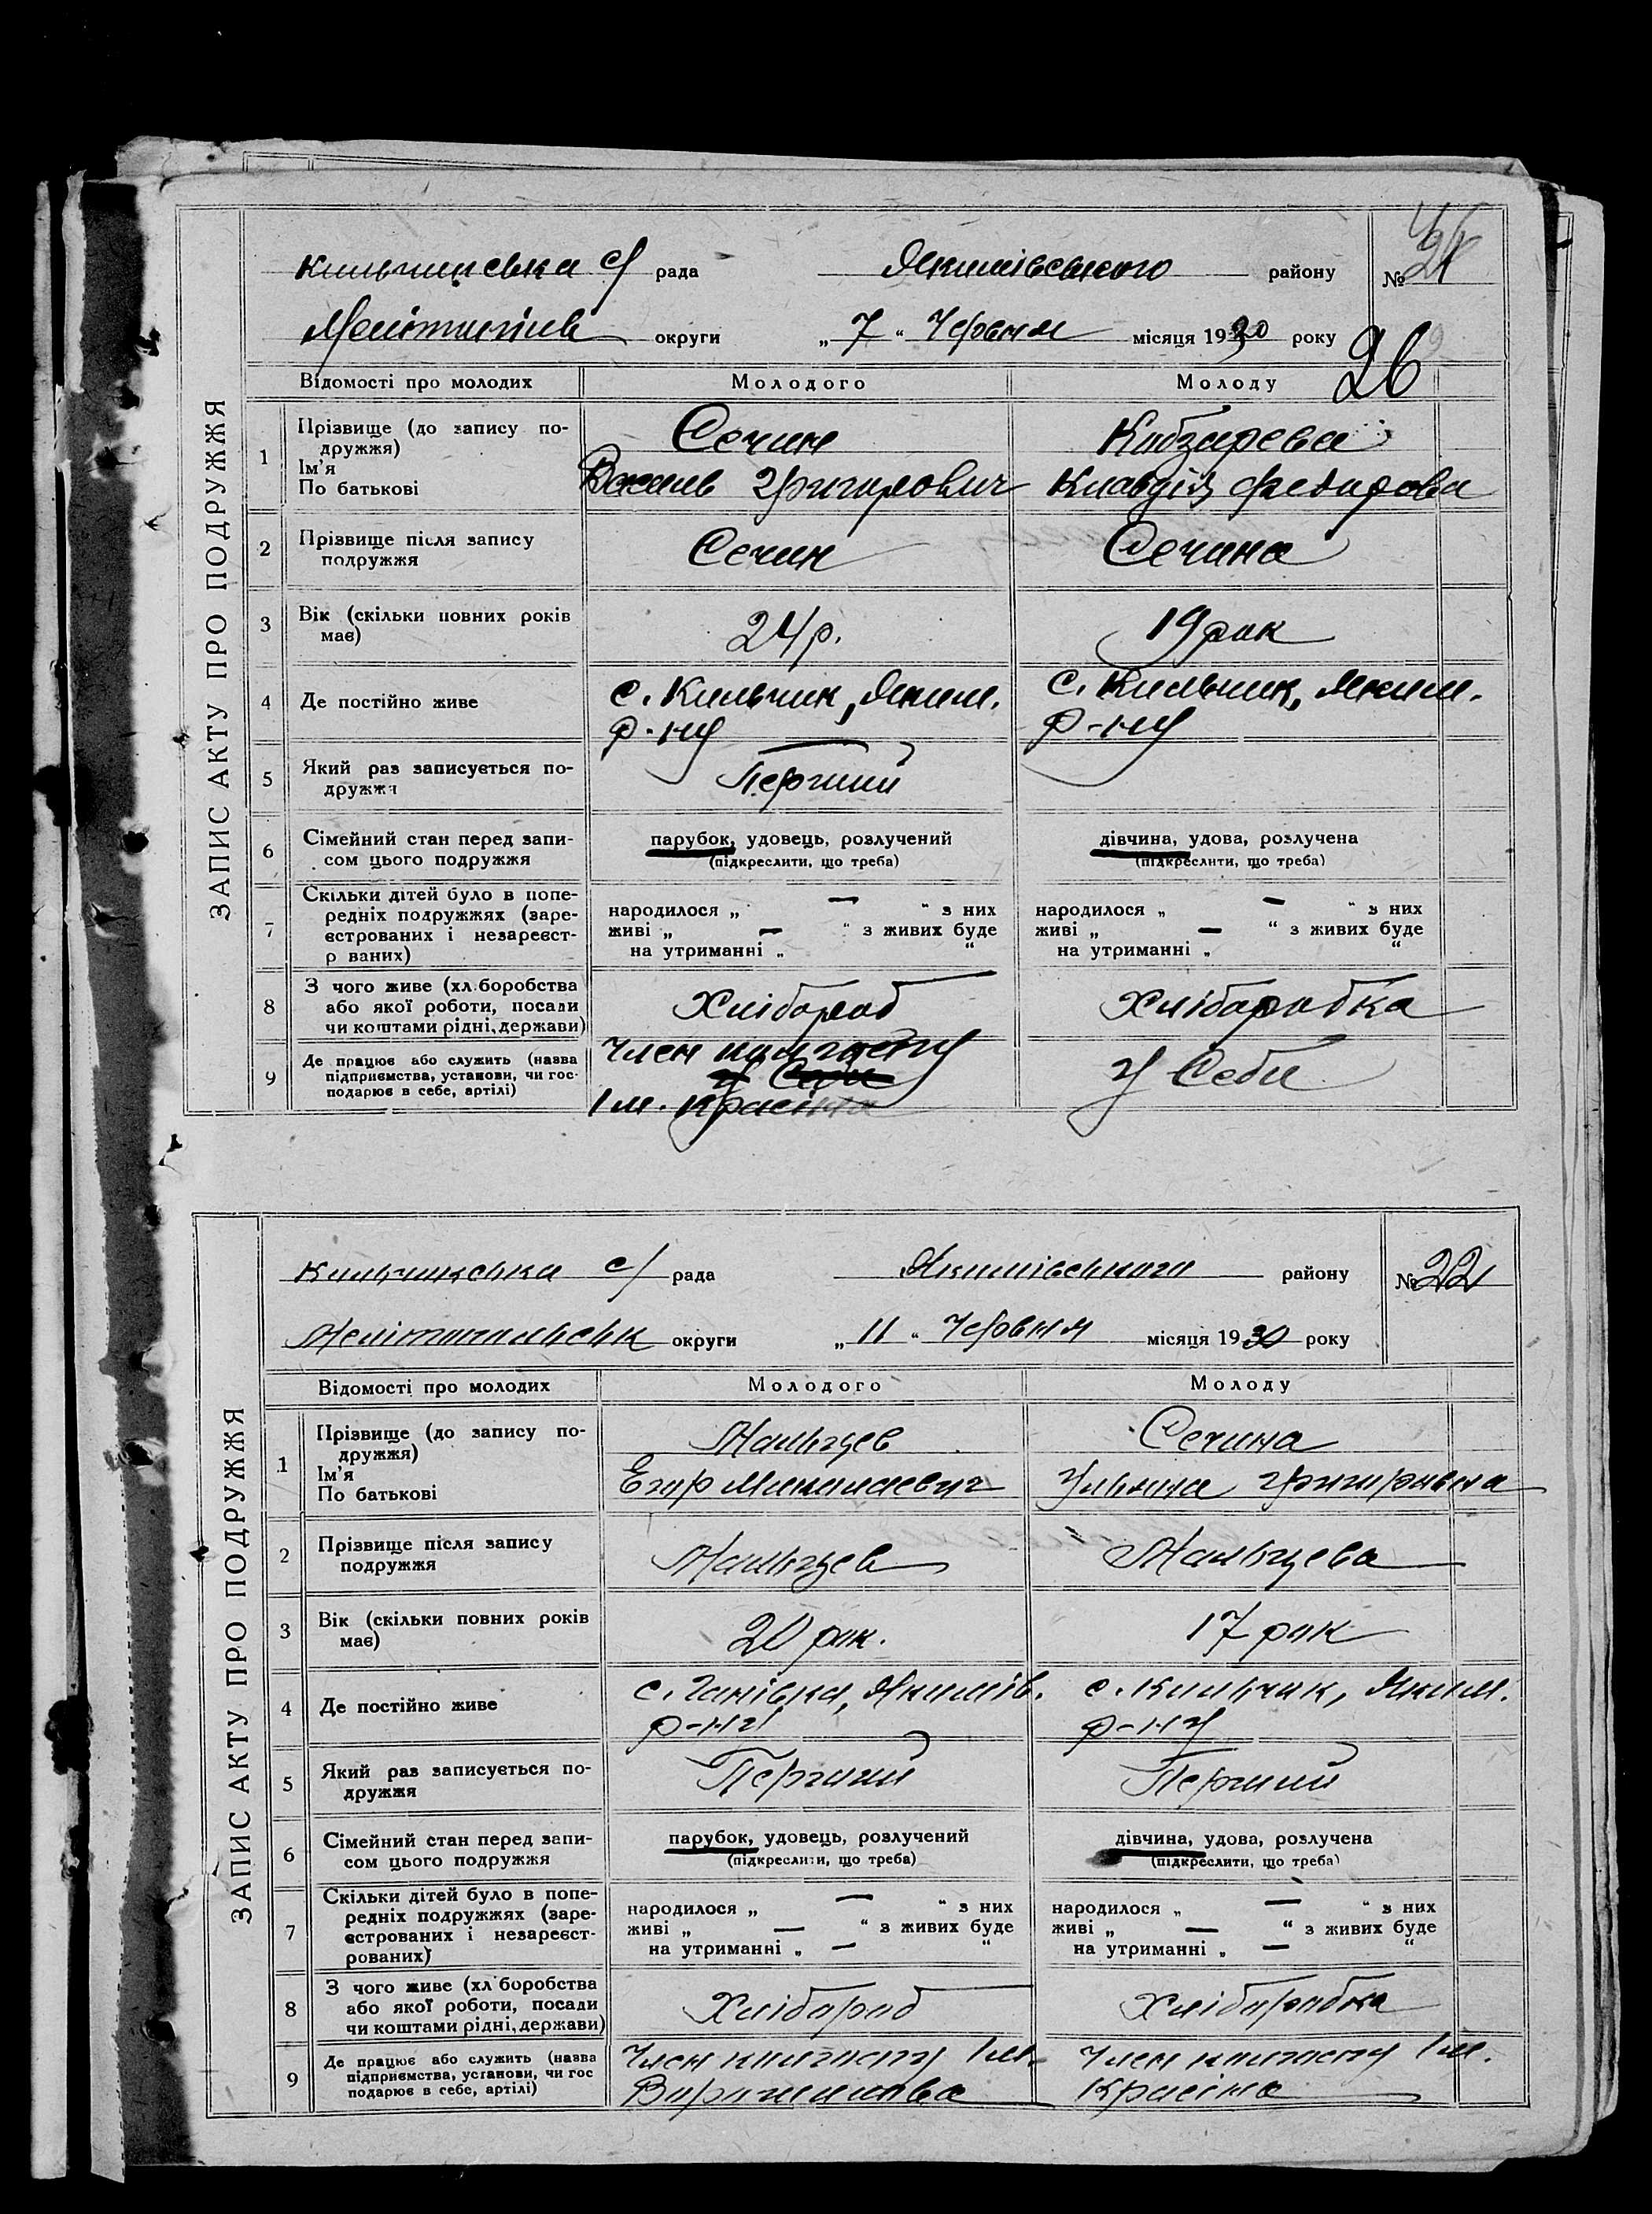 ЗАПИС АКТУ ПРО ПОДРУЖЖЯ
Кильчикська с/ рада Якимівського району № 21
округи „7“ Червня місяця 1930 року
26
Відомості про молодих Молодого Молоду
1 Прізвище (до запису подружжя) Сечин Кобзарева
Ім'я
По батькові Василь Григорович Клавдія Федорова
2 Прізвище після запису подружжя Сечин Сечина
3 Вік (скільки повних років має) 24 р. 19 рок
4 Де постійно живе с. Кильчик, Яким. р-ну с. Кильчик, Яким. р-ну
5 Який раз записується подружжя Перший
6 Сімейний стан перед записом цього подружжя парубок, удовець, розлучений дівчина, удова, розлучена
(підкреслити, що треба) (підкреслити, що треба)
7 Скільки дітей було в попередніх подружжях (зареєстрованих і незареєстр ваних) народилося „ — “ з них народилося „ — “ з них
живі „ — “ з живих буде живі „ — “ з живих буде
на утриманні „ “ на утриманні „ “
8 З чого живе (хліборобства або якої роботи, посади чи коштами рідні, держави) Хлібороб Хліборобка
9 Де працює або служить (назва підприємства, установи, чи господарює в себе, артілі) Член колгоспу у Себе
Ім. Красіна
ЗАПИС АКТУ ПРО ПОДРУЖЖЯ
Кильчикська с/ рада Якимівського району № 22
Мелітопільськ округи „11“ Червня місяця 1930 року
Відомості про молодих Молодого Молоду
1 Прізвище (до запису подружжя) Мальцев Сечина
Ім'я
По батькові Егор Миколаевич Ульяна Григорівна
2 Прізвище після запису подружжя Мальцев Мальцева
3 Вік (скільки повних років має) 20 рок. 17 рок
4 Де постійно живе с. Ганівка, Якимів. р-ну с. Кильчик, Яким. р-ну
5 Який раз записується подружжя Перший Перший
6 Сімейний стан перед записом цього подружжя парубок, удовець, розлучений дівчина, удова, розлучена
(підкреслити, що треба) (підкреслити, що треба)
7 Скільки дітей було в попередніх подружжях (зареєстрованих і незареєстрованих) народилося „ — “ з них народилося „ — “ з них
живі „ — “ з живих буде живі „ — “ з живих буде
на утриманні „ — “ на утриманні „ — “
8 З чого живе (хліборобства або якої роботи, посади чи коштами рідні, держави) Хлібороб Хліборобка
9 Де працює або служить (назва підприємства, установи, чи гос подарює в себе, артілі) Член колгоспу Ім. Ворошилова Член колгоспу Ім. Красіна